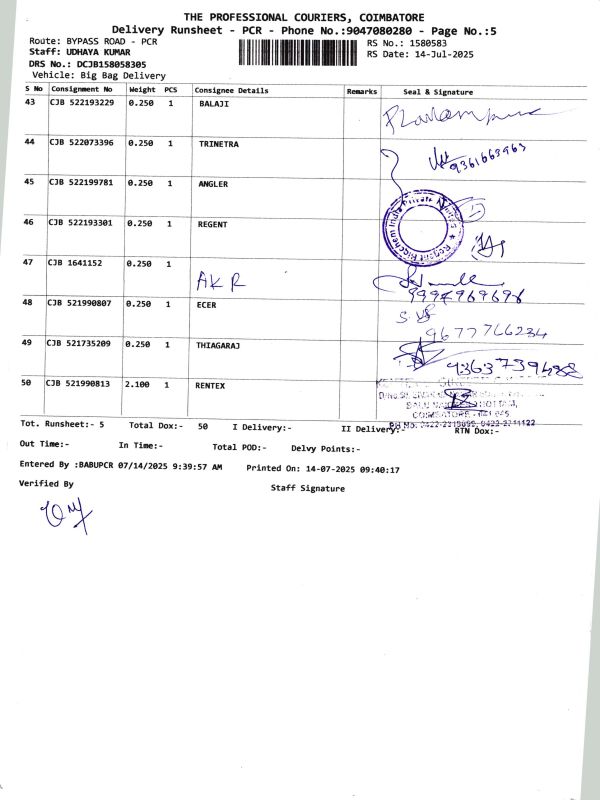 THE PROFESSIONAL COURIERS, COIMBATORE
Delivery Runsheet - PCR - Phone No.:9047080280 - Page No.:5
Route: BYPASS ROAD - PCR
RS No.: 1580583
Staff: UDHAYA KUMAR
RS Date: 14-Jul-2025
DRS No.: DCJB158058305
Vehicle: Big Bag Delivery
S No Consignment No Weight PCS Consignee Details Remarks Seal & Signature
43 CJB 522193229 0.250 1 BALAJI
44 CJB 522073396 0.250 1 TRINETRA
9361663963
45 CJB 522199781 0.250 1 ANGLER
46 CJB 522193301 0.250 1 REGENT
47 CJB 1641152 0.250 1
AKR
48 CJB 521990807 0.250 1 ECER
9677766234
49 CJB 521735209 0.250 1 THIAGARAJ
50 CJB 521990813 2.100 1 RENTEX
Tot. Runsheet:- 5 Total Dox:- 50 I Delivery:- II Delivery:- RTN Dox:-
Out Time:- In Time:- Total POD:- Delvy Points:-
Entered By :BABUPCR 07/14/2025 9:39:57 AM Printed On: 14-07-2025 09:40:17
Verified By Staff Signature